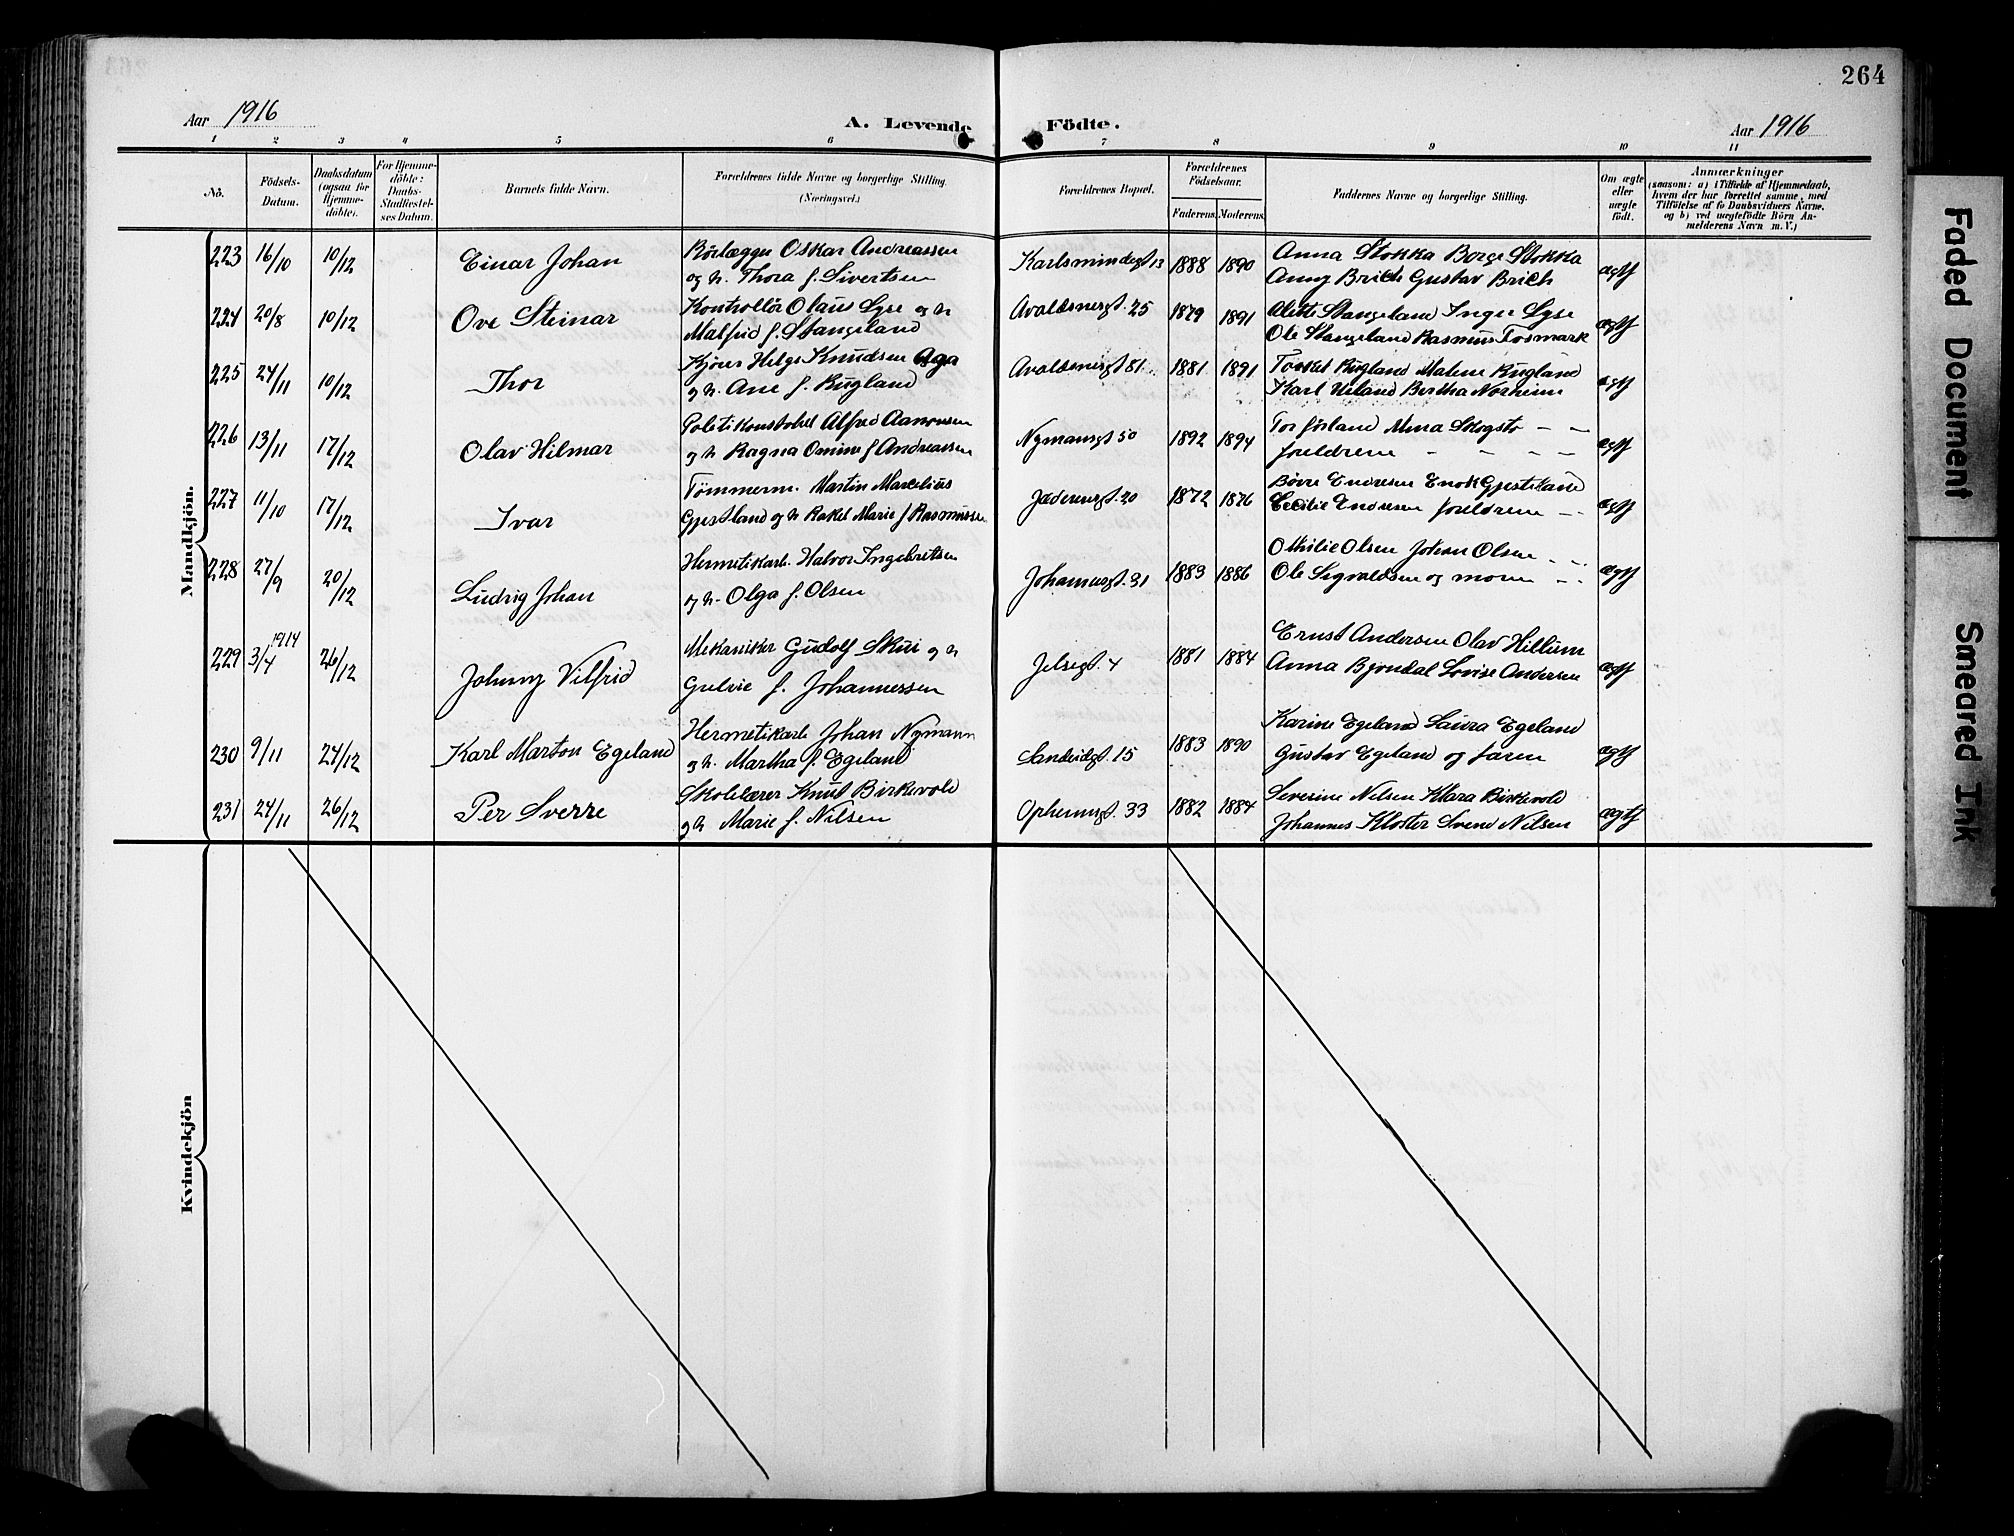 264
Aar 1916
A. Levende Födte.
Aar 1916
1 2 3 4 5 6 7 8 9 10 11
No.
Födsels-
Datum.
Daabsdatum
(ogsaa for
Hjemme-
döbte).
For Hjemme-
döbte:
Daabs-
Stadfæstel-
ses Datum.
Barnets fulde Navn.
Forældrenes fulde Navne og borgerlige Stilling.
(Næringsvei.)
Forældrenes Bopæl.
Forældrenes
Födselsaar.
Faderens. Moderens.
Faddernes Navne og borgerlige Stilling.
Om ægte
eller
uægte
födt.
Anmærkninger
(saasom: a) i Tilfælde af Hjemmedaab,
hvem der har forrettet samme, med
Tilföielse af to Daabsvidners Navne.
og b) ved uægtefödte Börn An-
melderens Navn m. V.)
Mandkjön.
223 16/10 10/12 Einar Johan
Rörlægger Oskar Andreassen
og h. Thora f. Sivertsen
Karlsmindegt 13 1888 1890
Anna Stokka Borge Stokka
Anny Brich Gustav Brich
ægte
224 20/8 10/12 Ove Steinar
Kontrollör Olaus Lyse og h
Malfrid f. Stangeland
Avaldsnesgt. 25 1879 1891
Alette Stangeland Inger Lyse
Ole Stangeland Rasmus Fosmark
ægte
225 24/11 10/12 Thor
Kjörer Helge Knudsen Aga
og h. Ane f. Rugland
Avaldsnesgt 81 1881 1891
Torkel Rugland Malene Rugland
Karl Ueland Bertha Norheim
ægte
226 13/11 17/12 Olav Hilmar
Politikonstabel Alfred Aamonsen
og h Ragna Omine f Andreassen
Nymansgt 50 1892 1894
Tor Förland Mina Skogstö - -
foreldrene - - - -
ægte
227 11/10 17/12 Ivar
Tømmerm. Martin Marcelius
Gjestland og h Rakel Marie f Rasmussen
Jæderensgt. 20 1872 1876
Børre Endresen Enok Gjesteland
Cecilie Endresen foreldrene - -
ægte
228 27/9 20/12 Ludvig Johan
Hermetikarb. Halvor Ingebretsen
og h. Olga f. Olsen
Johannesgt. 31 1883 1886
Othilie Olsen Johan Olsen - -
Ole Sigvaldsen og moren - -
ægte
229 3/4 1914 26/12 Johnny Vilfrid
Mekaniker Gudolf Skui og h
f. Johannessen
Jelsegt. 4 1881 1884
Ernst Andersen Olav Hillum
Anna Bjöndal Lovise Andersen
ægte
230 9/11 24/12 Karl Marton Egeland
Hermetikarb Johan Nymann
og h. Martha f. Egeland
Sandeidgt. 15 1883 1890
Karine Egeland Laura Egeland
Gustav Egeland og faren
ægte
231 24/11 26/12 Per Sverre
Skolelærer Knut Birkevold
og h Marie f. Nilsen
Opheimsgt. 33 1882 1884
Severine Nilsen Klara Birkevold
Johannes Kloster Svend Nilsen
ægte
Kvindekjön
Faded Document
Smeared Ink